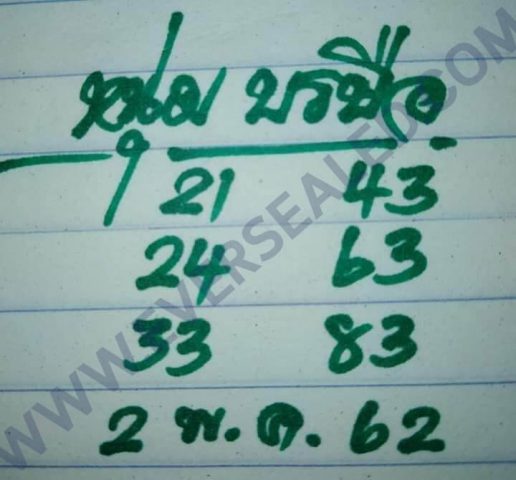 หนุ่ม บรบือ
21 43
24 63
33 83
2 พ.ค. 62
WWW.EVERSEALED.COM